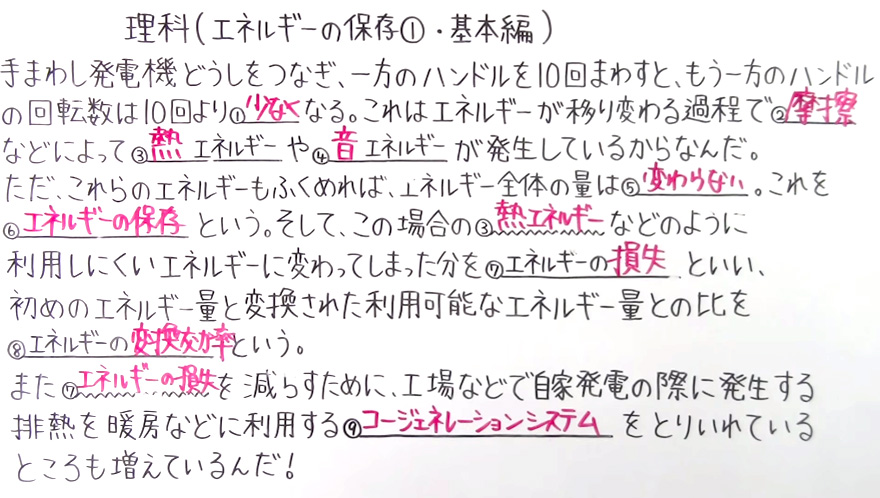 理科(エネルギーの保存①・基本編)
手まわし発電機どうしをつなぎ、一方のハンドルを10回まわすと、もう一方のハンドル
の回転数は10回より①少なくなる。これはエネルギーが移り変わる過程で②摩擦
などによって③熱エネルギーや④音エネルギーが発生しているからなんだ。
ただ、これらのエネルギーもふくめれば、エネルギー全体の量は⑤変わらない。これを
⑥エネルギーの保存という。そして、この場合の③熱エネルギーなどのように
利用しにくいエネルギーに変わってしまった分を⑦エネルギーの損失といい、
初めのエネルギー量と変換された利用可能なエネルギー量との比を
⑧エネルギーの変換効率という。
また⑦エネルギーの損失を減らすために、工場などで自家発電の際に発生する
排熱を暖房などに利用する⑨コージェネレーションシステムをとりいれている
ところも増えているんだ!